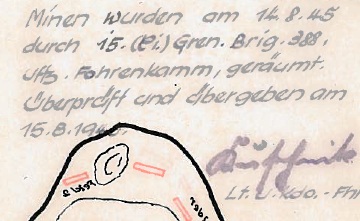 Minen wurden am 14.8.45
durch 15.(Pi.) Gren. Brig. 388,
Uffz. Fohrenkamm, geräumt.
Überprüft und übergeben am
15.8.1945.
Lt. u. Kdo.-Fhr